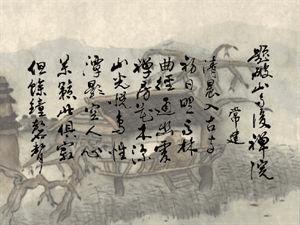 題破山寺後禪院
常建
清晨入古寺
初日照高林
曲徑通幽處
禪房花木深
山光悅鳥性
潭影空人心
萬籟此俱寂
但餘鐘磬聲